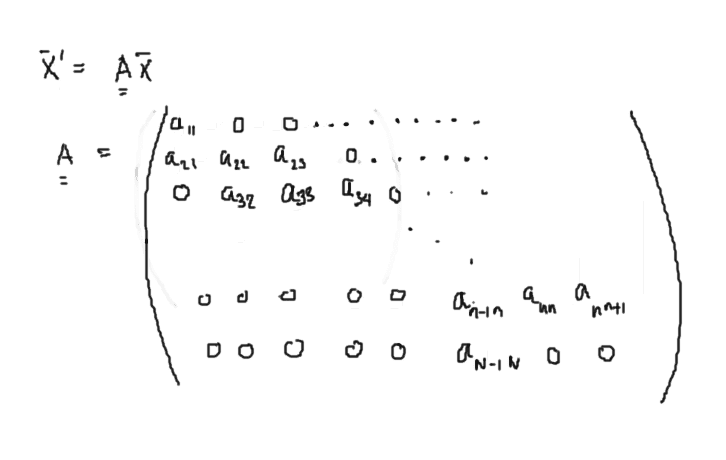 x̄' = A̳ x̄
A̳ = ( a₁₁ 0 0 . . . . . . . . .
a₂₁ a₂₂ a₂₃ 0 . . . . . .
0 a₃₂ a₃₃ a₃₄ 0 . . .
. . .
0 0 0 0 0 aₙ₋₁ₙ aₙₙ aₙₙ₊₁
0 0 0 0 0 a_N-1N 0 0 )